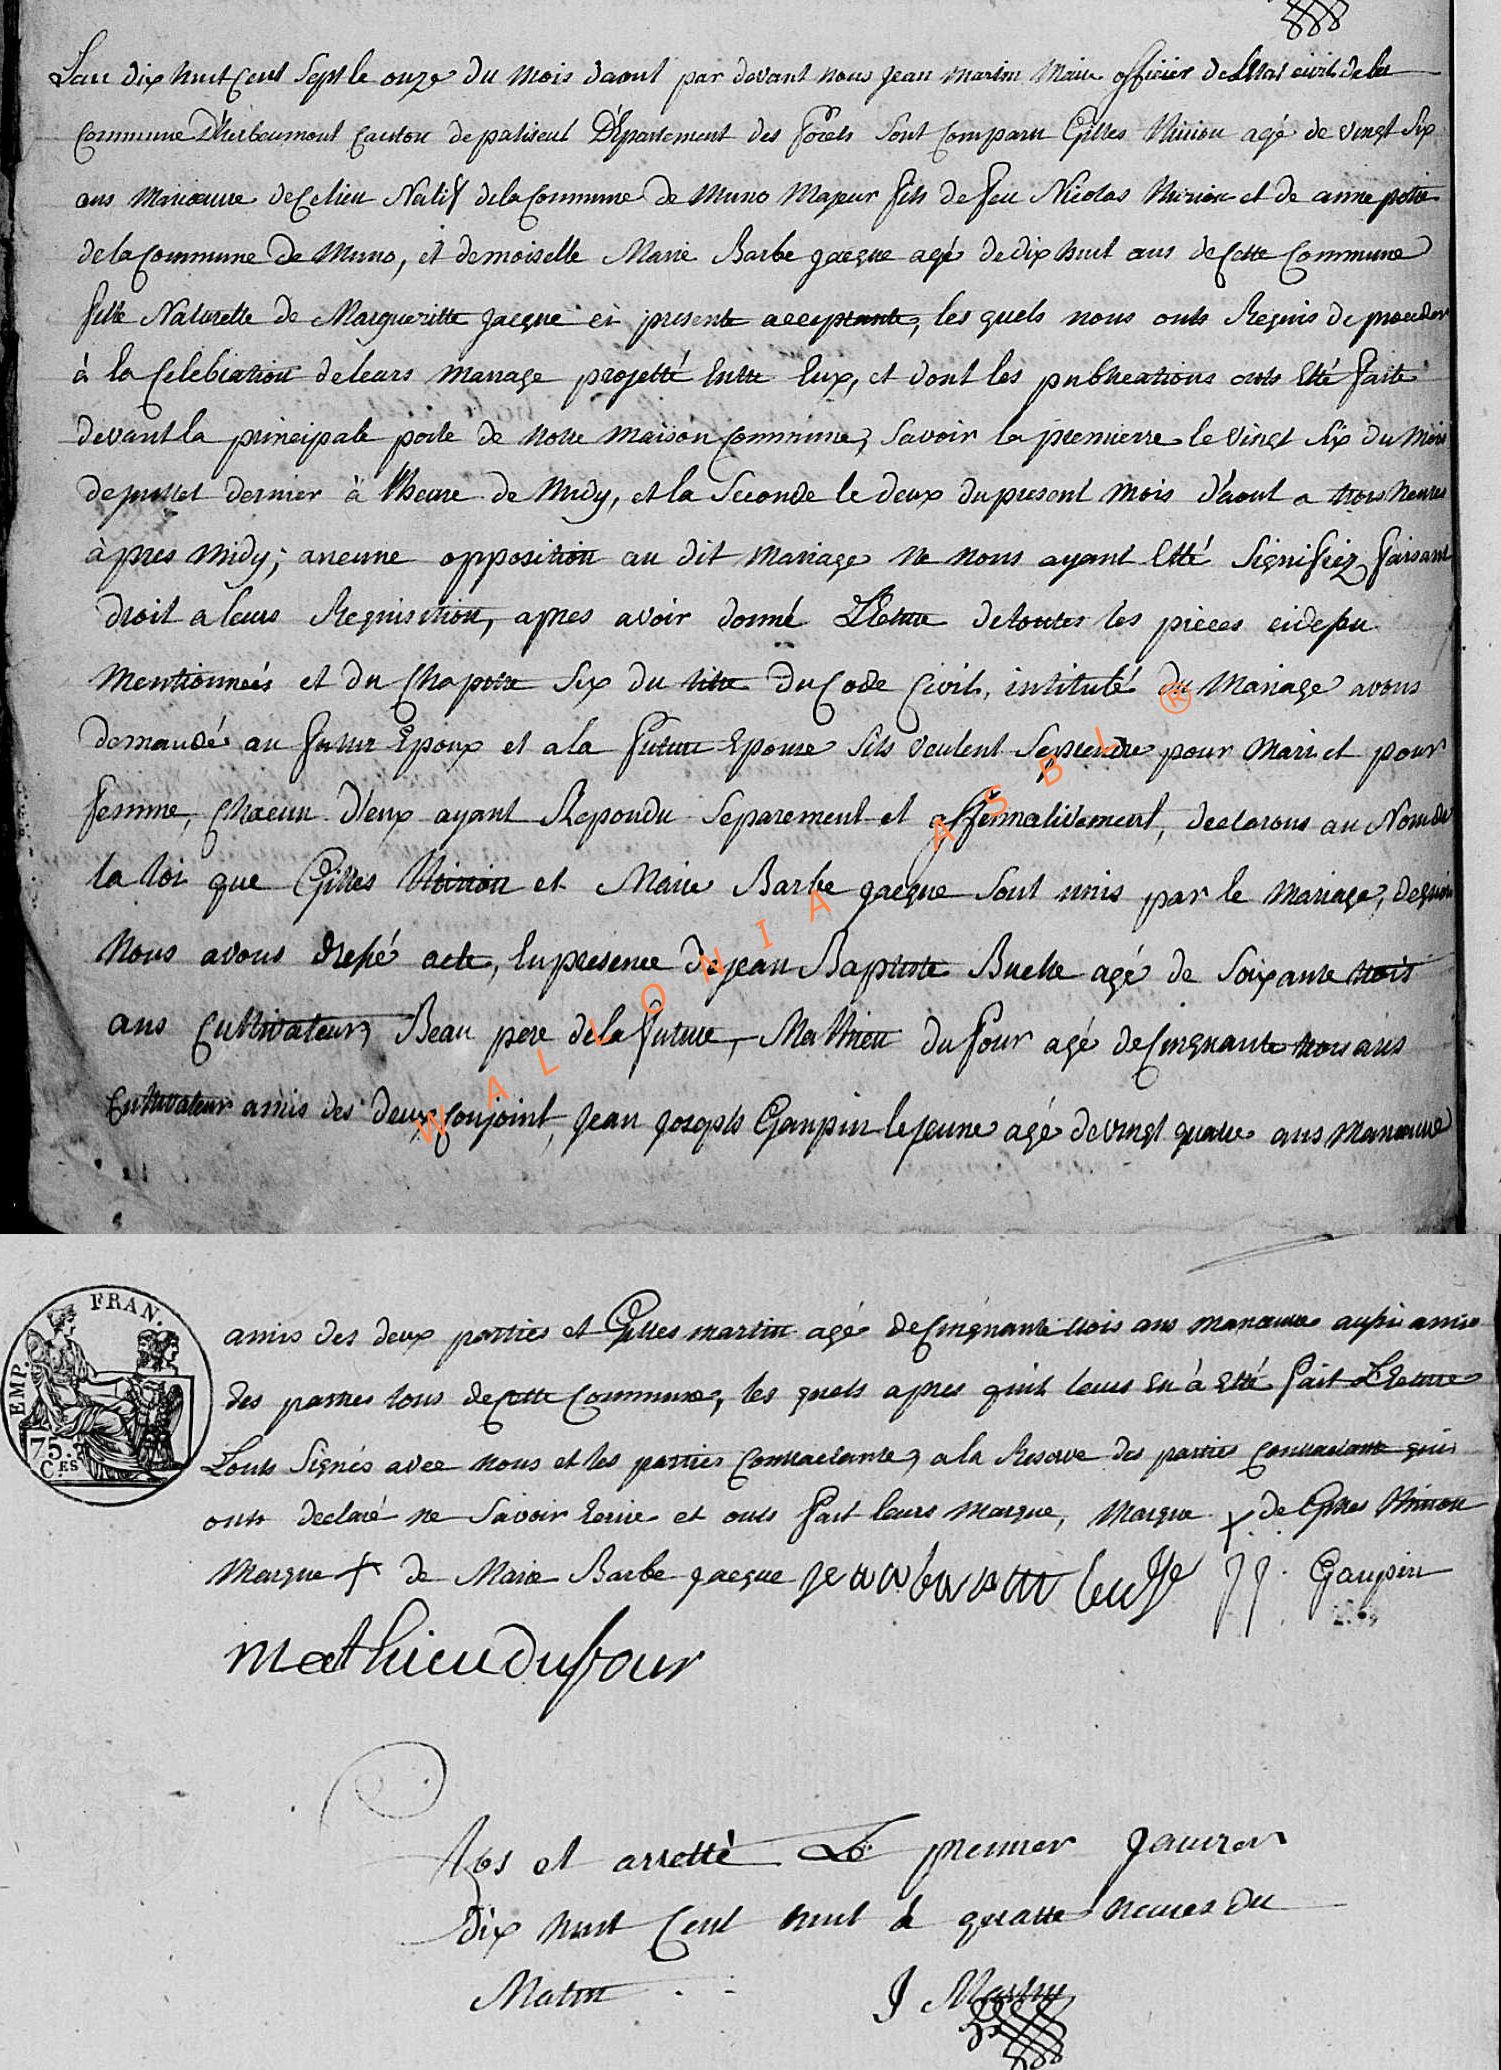 Lan dix huit Cent Sept le onze du mois daout par devant nous jean martin Maire officier de Letat civil de la
Commune D'herbeumont Canton de paliseul Département des forets Sont Comparu Gilles Thirion agé de vingt Six
ans Manœuvre de Ce lieu Natif de la Commune de Muno Majeur fils de feu Nicolas thirion et de anne potie
de la Commune de Muno, et demoiselle Marie Barbe jacque agé de dix huit ans de Cette Commune
fille Naturelle de Margueritte jacque ici presente acceptante, les quels nous onts Requis de proceder
à la Celebration de leurs mariage projetté Entre Eux, et dont les publications onts Etté faite
devant la principale porte de notre maison Commune, Savoir la premierre le vingt Six du Mois
de juillet dernier à l'heure de Midy, et la Seconde le deux du present mois d'aout a trois heures
àpres midy; aucune opposition au dit Mariage ne nous ayant Etté Signifiez faisant
droit a leurs Requisition, apres avoir donné Lecture de toutes les pièces cidessu
Mentionneés et du Chapitre Six du titre du Code Civil, intitulé du Mariage avons
demandé au futur Epoux et a la future Epouse Sils veulent Seprendre pour Mari et pour
femme, Chacun d'eux ayant Repondu Separement et affirmativement, declarons au Nom de
la loi que Gilles thirion et Marie Barbe jacque Sont unis par le Mariage, dequoi
Nous avons dressé acte, En presence de jean Baptiste Buche agé de Soixante trois
ans Cultivateur, Beau pere de la future, Mathieu du four agé de Cinquante trois ans
Cultivateur amis des deux Conjoint, jean joseph Gaupin le jeune agé de vingt quatre ans Manœuvre
WALLONIA ASBL ®
EMP. FRAN.
75. C.ES
amis des deux parties et Gilles martin agé de Cinquante trois ans manœuvre aussi amis
des parties tous de Cette Commune, les quels apres quil leurs En à Etté fait Lecture
Lonts Signés avec nous et les parties Contractante, a la Reserve des parties Contractante qui
onts declaré ne Savoir Ecrire et onts fait leurs Marque, Marque + de Gilles thirion
Marque + de Marie Barbe jacque jean batiste JJ. Gaupin
mathieu dufour
Clos et arretté Le premier janvier
dix huit Cent huit à quatre heures du
Matin
J Martin